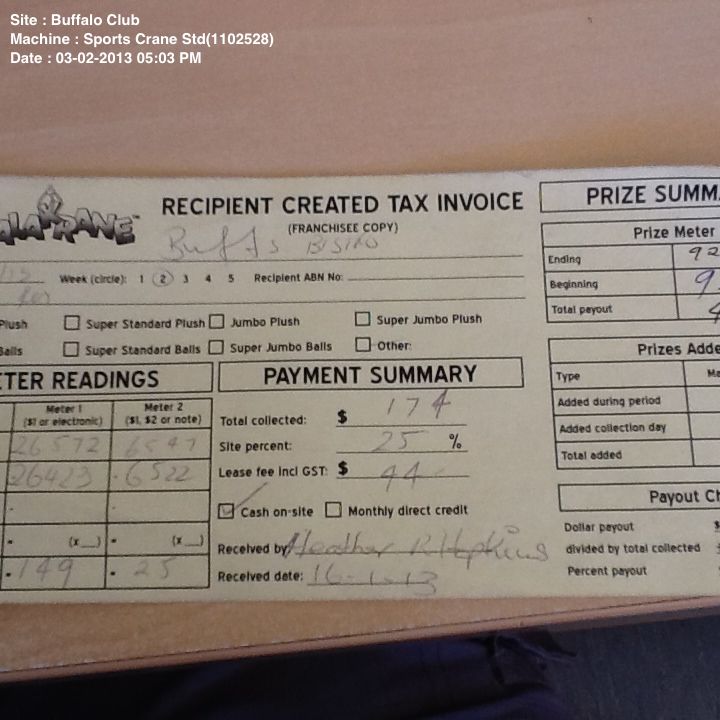 Site : Buffalo Club
Machine : Sports Crane Std(1102528)
Date : 03-02-2013 05:03 PM
RECIPIENT CREATED TAX INVOICE
(FRANCHISEE COPY)
Buffs Bistro
Week (circle): 1 2 3 4 5 Recipient ABN No:
Plush Super Standard Plush Jumbo Plush Super Jumbo Plush
Balls Super Standard Balls Super Jumbo Balls Other:
TER READINGS
Meter 1 Meter 2
($1 or electronic) ($1, $2 or note)
26572 6547
26423 6522
(x__) (x__)
149 25
PAYMENT SUMMARY
Total collected: $ 174
Site percent: 25 %
Lease fee incl GST: $ 44
Cash on-site Monthly direct credit
Received by Heather R Hopkins
Received date: 16-1-13
PRIZE SUMMA
Prize Meter
Ending 92
Beginning 9
Total payout 4
Prizes Adde
Type Ma
Added during period
Added collection day
Total added
Payout Ch
Dollar payout $
divided by total collected
Percent payout